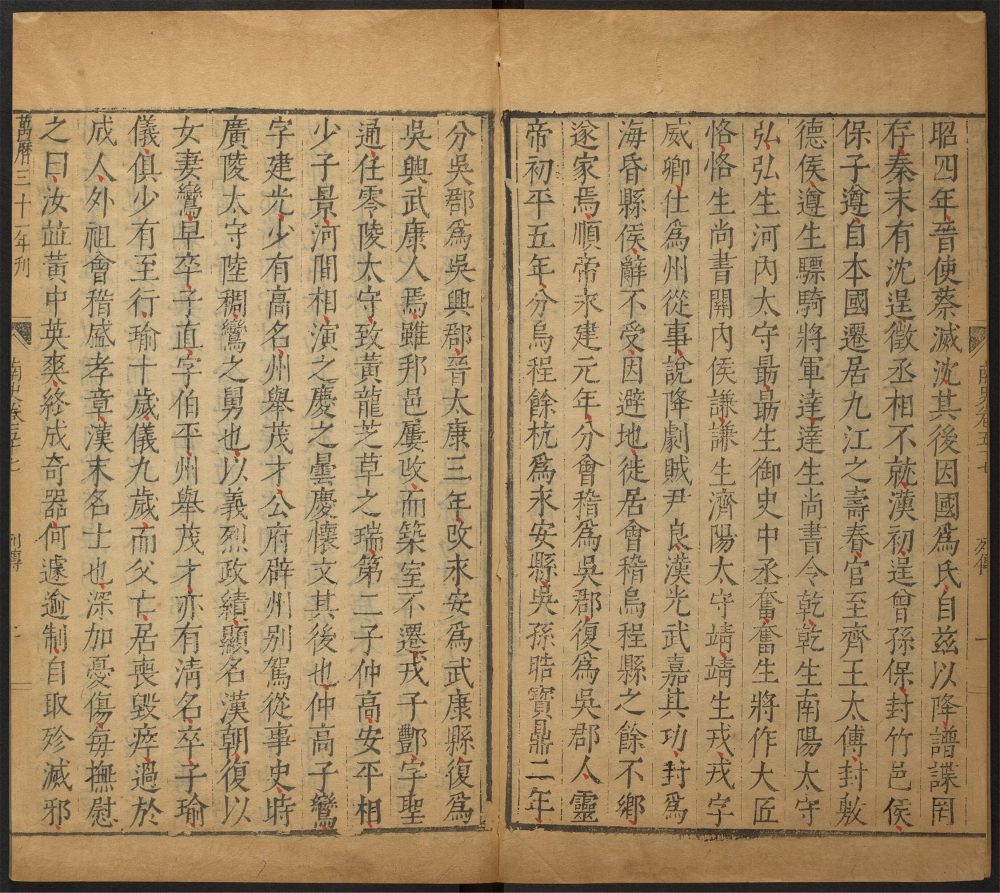 昭四年晉使蔡滅沈其後因國爲氏自茲以降譜諜罔
存秦末有沈逞徵丞相不就漢初逞曾孫保封竹邑侯
保子遵自本國遷居九江之壽春官至齊王太傅封敷
德侯遵生驃騎將軍達達生尚書令乾乾生南陽太守
弘弘生河內太守勗勗生御史中丞奮奮生將作大匠
恪恪生尚書關內侯謙謙生濟陽太守靖靖生戎戎字
威卿仕爲州從事說降劇賊尹良漢光武嘉其功封爲
海昏縣侯辭不受因避地徙居會稽烏程縣之餘不鄉
遂家焉順帝永建元年分會稽爲吳郡復爲吳郡人靈
帝初平五年分烏程餘杭爲永安縣吳孫晧寶鼎二年
分吳郡爲吳興郡晉太康三年改永安爲武康縣復爲
吳興武康人焉雖邦邑屢改而築室不遷戎子酆字聖
通任零陵太守致黃龍芝草之瑞第二子仲高安平相
少子景河間相演之慶之曇慶懷文其後也仲高子鸞
字建光少有高名州舉茂才公府辟州別駕從事史時
廣陵太守陸稠鸞之舅也以義烈政績顯名漢朝復以
女妻鸞早卒子直字伯平州舉茂才亦有淸名卒子瑜
儀俱少有至行瑜十歲儀九歲而父亡居喪毀瘁過於
成人外祖會稽盛孝章漢末名士也深加憂傷每撫慰
之曰汝並黃中英爽終成奇器何遽逾制自取殄滅邪
萬曆三十一年刊
列傳